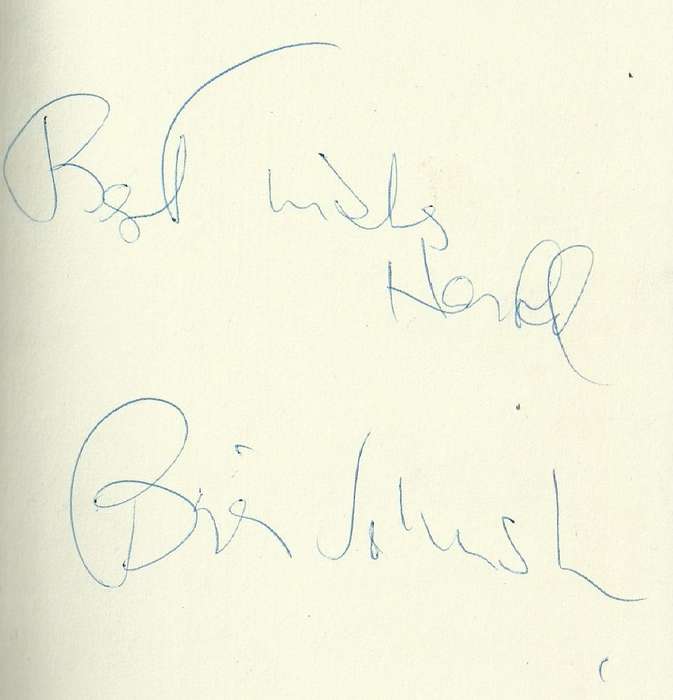 Best wishes
Harold
Brian Johnston